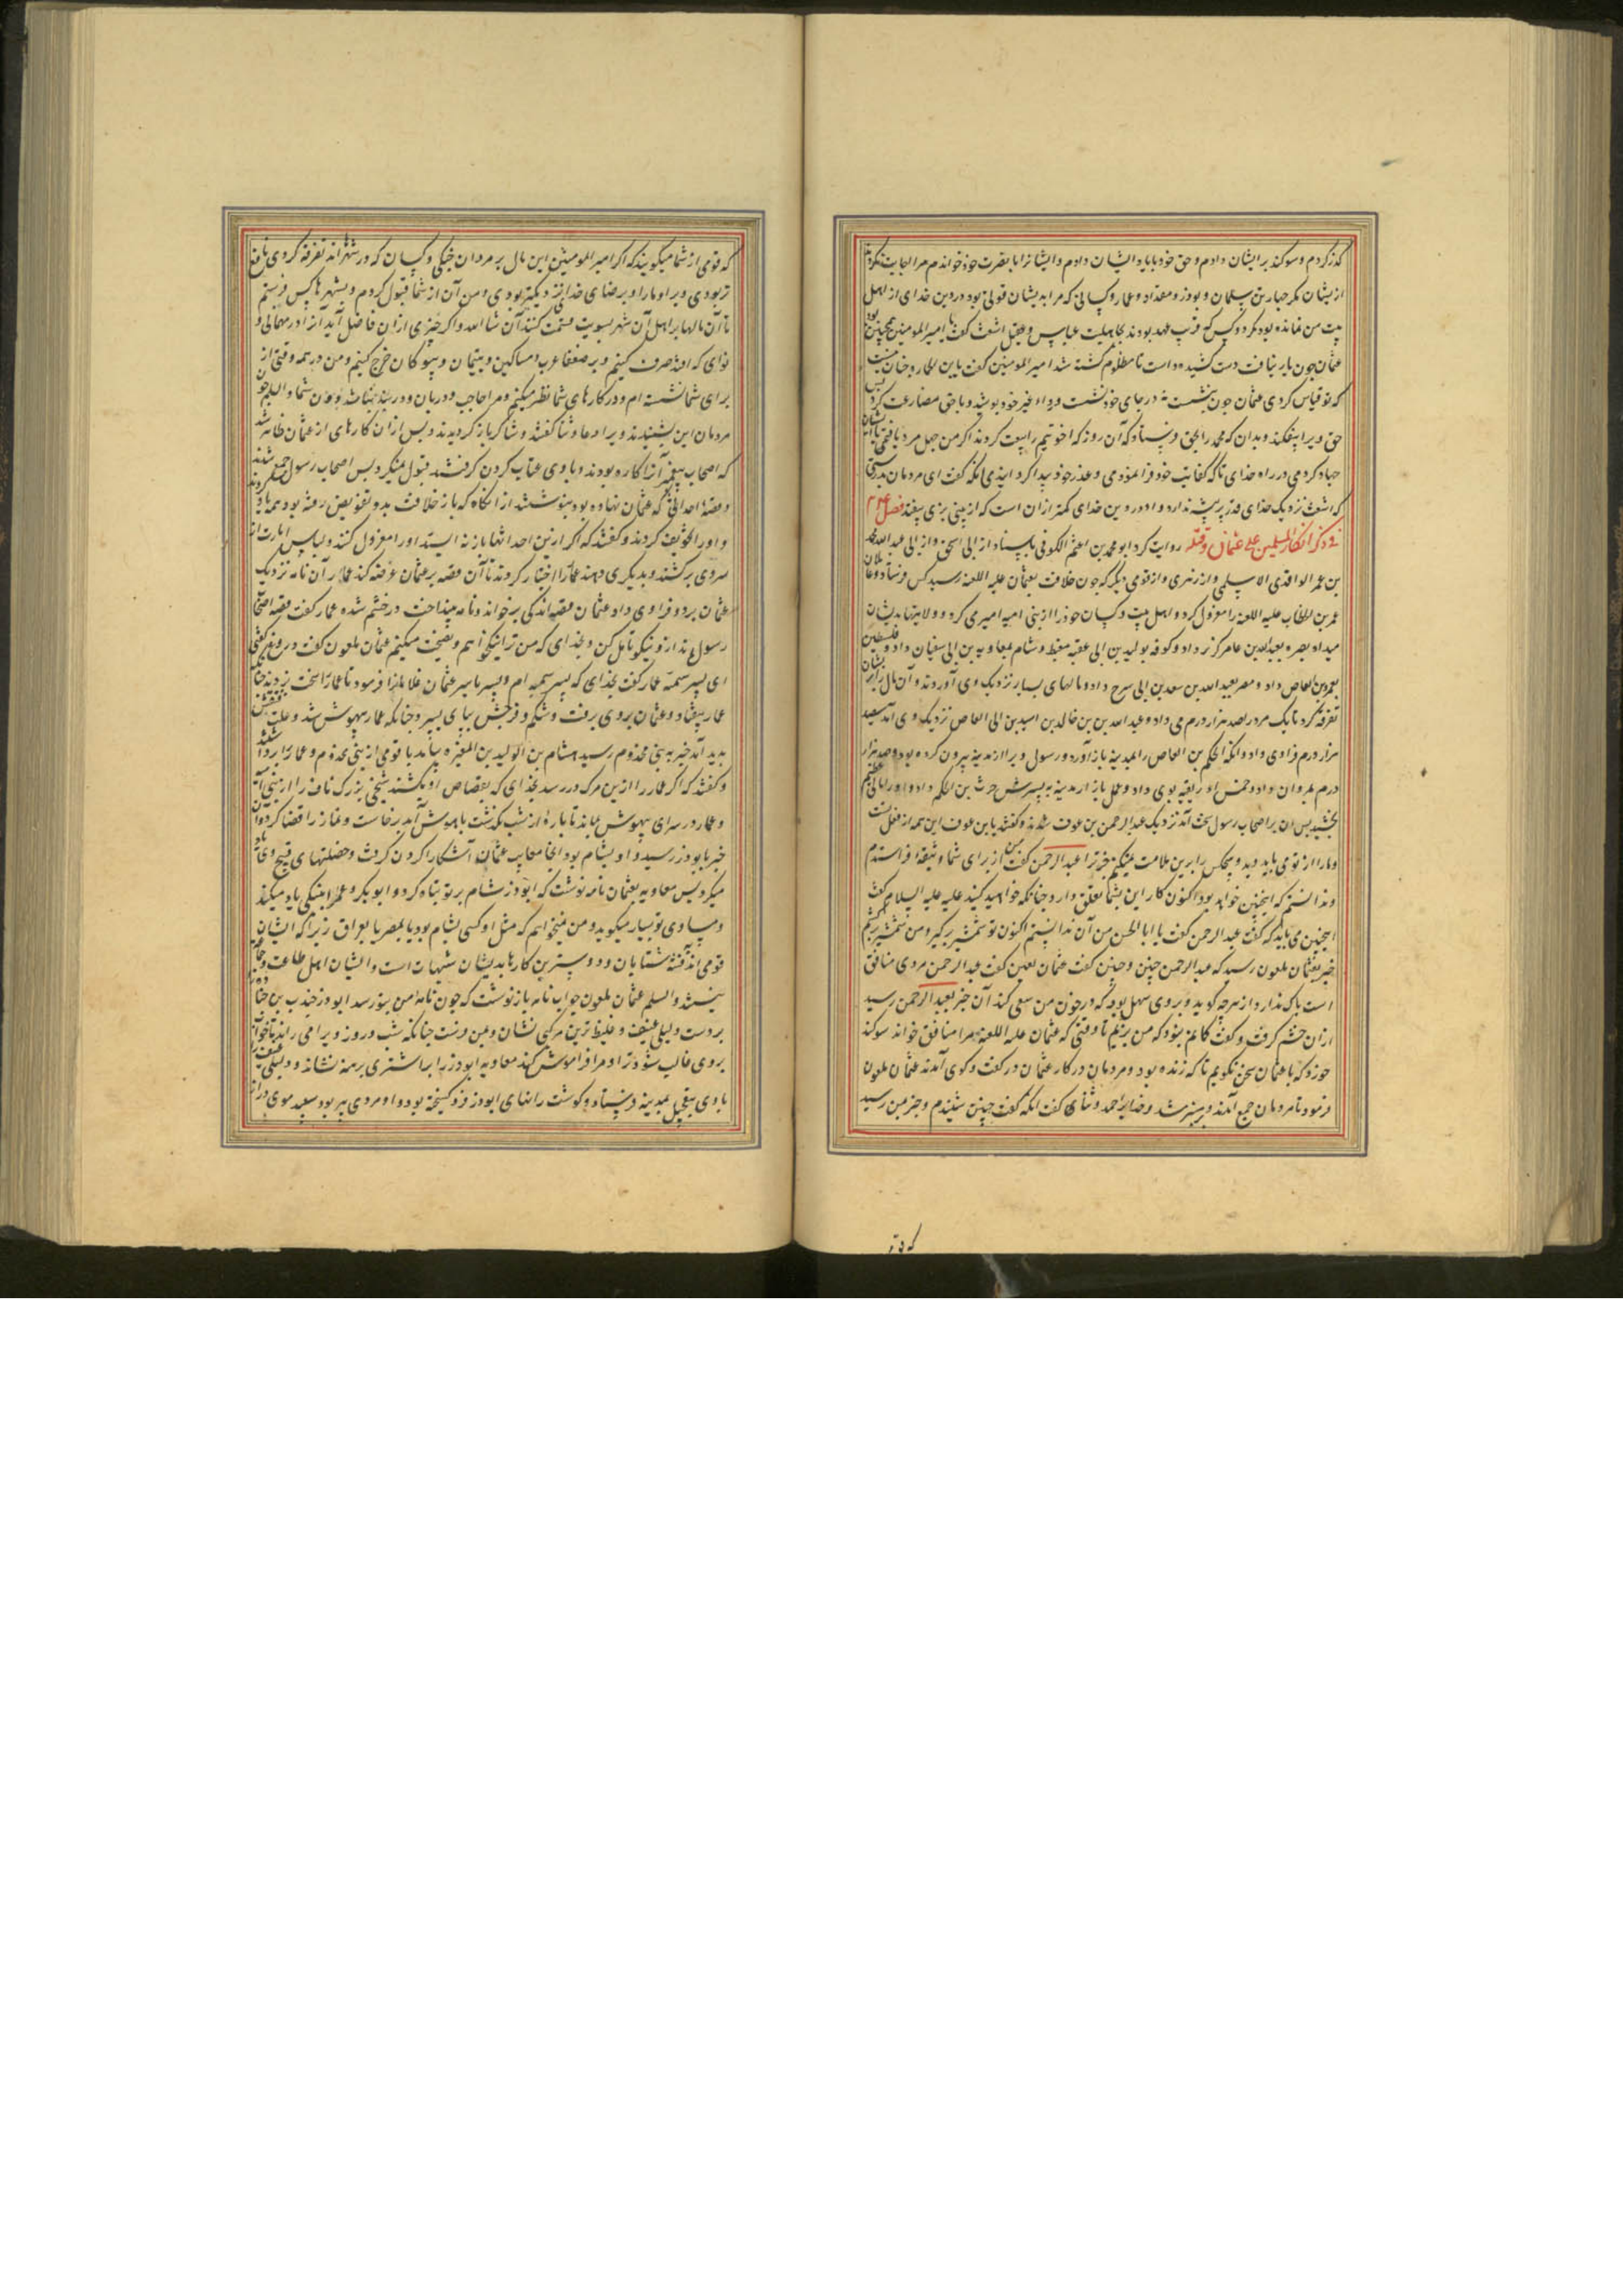 گذر کردم و سوگند بر ایشان دادم و حق خود با یاد ایشان دادم و ایشانرا با نصرت خود خواندم مرا اجابت نکردند
از یشان مگر چهار تن سلمان و بوذر و مقداد و عمار و کسانی که مرا بدیشان قوتی بود در دین خدای از اهل
بیت من نمانده بود مگر دو کس که قریب عهد بودند بجاهلیت عباس و عقیل اشعث گفت یا امیر المومنین همچنین بود
عثمان چون یار نیافت دست کشیده داشت تا مظلوم کشته شد امیر المومنین گفت یابن الخماره چنان نیست
که تو قیاس کردی عثمان چون بنشست نه در جای خود نشست و رداء غیر خود پوشید و با حق مصارعت کرد پس
حق ویرا بیفکند و بدان که محمد را بحق فرستاد که آن روز که اخو تیم را بیعت کردند اگر من چهل مرد یافتمی با ایشان
جهاد کردمی در راه خدای تا که کفایت خود فرا نمودمی و عذر خود پیدا کرد ایندمی آنکه گفت ای مردمان بدرستی
که اشعث نزدیک خدای قدر پر پشه ندارد و او در دین خدای کمتر از آن است که از بینی بزی بیفتد فصل
فی ذکر انکار المسلمین علی عثمان وقتله روایت کرد ابو محمد بن اعثم الکوفی باسناد از ابی اسحق و از ابی عبد الله محمد
بن عمر الواقدی الاسلمی و از زهری و از قومی دیگر که چون خلافت بعثمان علیه اللعنه رسید کس فرستاد و عمال
عمر بن الخطاب علیه اللعنه را معزول کرد و اهل بیت و کسان خود را از بنی امیه امیری می کرد و ولایتها بدیشان
میداد بصره بعبدالله بن عامر کریز داد و کوفه بولید بن ابی عقبه معیط و شام بمعاویه بن ابی سفیان داد و فلسطین
بعمرو بن العاص داد و مصر بعبد الله بن سعد بن ابی سرح داد و مالهای بسیار نزدیک وی آوردند و آن مال را بر ایشان
تفرقه کرد تا یک مرد را صد هزار درم می داد و عبد الله بن خالد بن اسید بن ابی العاص نزدیک وی آمد سیصد
هزار درم فراوی داد و آنگه الحکم بن العاص را بمدینه باز آورد و رسول ویرا از مدینه بیرون کرده بود و صد هزار
درم بمروان داد و خمس افریقیه بوی داد و عمل بازار مدینه به پسرش حرث بن الحکم داد و او را مالی عظیم
بخشید پس آن بر اصحاب رسول سخت آمد نزدیک عبد الرحمن بن عوف شدند و گفتند یابن عوف این همه از فعل تست
و ما را از تو می باید دید و هیچکس را برین ملامت نمیکنیم جز ترا عبد الرحمن گفت من از برای شما وثیقه فراستدم
و ندانستم که اینچنین خواهد بود اکنون کار این بشما تعلق دارد چنانکه خواهید کنید علی علیه السلام گفت
اینچنین می باید که گفت عبد الرحمن گفت یا ابا الحسن من آن ندانستم اکنون تو شمشیر برگیر و من شمشیر برگیرم
خبر بعثمان ملعون رسید که عبد الرحمن چنین و چنین گفت عثمان لعین گفت عبد الرحمن مردی منافق
است باکی ندارد از هرچه گوید و بروی سهل بود که در خون من سعی کند آن خبر بعبد الرحمن رسید
از آن خشم گرفت و گفت گمانم نبود که من بزیم تا وقتی که عثمان علیه اللعنه مرا منافق خواند سوگند
خورد که با عثمان سخن نگویم تا که زنده بود و مردمان در کار عثمان در گفت و گوی آمدند عثمان ملعون
فرمود تا مردمان جمع آمدند و بر منبر شد و خدایرا حمد و ثنای گفت آنگه گفت چنین شنیدم و خبر بمن رسید
که قو
که قومی از شما میگویند که اگر امیر المومنین این مال بر مردان جنگی و کسان که در شهرااند تفرقه کردی نافع
تر بودی ویرا و ما را و برضای خدا نزدیکتر بودی و من آن از شما قبول کردم و بشهرها کس فرستم
تا آن مالها بر اهل آن شهر بسویت قسمت کنند آن شا الله و اگر چیزی از آن فاضل آید آنرا در مهماتی و
نوای که افتد صرف کنیم و بر ضعفا عرب و مساکین و یتیمان و بیوکان خرج کنیم و من در همه وقتی از
برای شما نشسته ام و در کارهای شما نظر میکنم و مرا حاجب و دربان و دربند نباشد و من شما و السلم چون
مردمان این بشنیدند ویرا دعا و ثنا گفتند و شاکر باز گردیدند و پس از آن کارهای از عثمان ظاهر شد
که اصحاب پیغمبر آنرا کاره بودند و با وی عتاب کردن گرفتند قبول نمیکرد پس اصحاب رسول جمع شدند
و قصه احداثی که عثمان نهاده بود بنوشتند از آنگاه که باز خلافت بدو تفویض رفته بود همه یاد کردند
و او را تخویف کردند و گفتند که اگر ازین احداثها باز نه ایستد او را معزول کنند و لباس امارت از
سروی برکشند و بدیگری دهند عمار را اختیار کردند تا آن قصه بر عثمان عرضه کند عمار آن نامه نزدیک
عثمان برد و فراوی داد عثمان قصه اندکی برخواند و نامه بینداخت در خشم شده عمار گفت قصه اصحاب
رسول مندازد و نیکو تامل کن و بخدای که من ترا نیکخواهم و نصیحت میکنم عثمان ملعون گفت دروغ گفتی
ای پسر سمیه عمار گفت بخدای که پسر سمیه ام و پسر یاسر عثمان غلامانرا فرمود تا عمار را سخت بزدند چنانکه
عمار بیفتاد و عثمان بروی رفت و شکم و فرجش بپای بسپرد چنانکه عمار بیهوش شد و علت فتقش
پدید آمد خبر به بنی مخزوم رسید هشام بن الولید بن المغیره بیامد با قومی از بنی مخزوم و عمار را برداشتند
و گفتند که اگر عمار را ازین مرگ در رسد بخدای که بقصاص او بکشند شیخی بزرگ ناف را از بنی امیه
و عمار در سرای بیهوش بماند تا پاره از شب بگذشت باهوش آمد برخاست و نماز را قضا کرد و آن
خبر بابوذر رسید و او بشام بود آنجا معایب عثمان آشکارا کردن گرفت و خصلتهای قبیح وی یاد
میکرد پس معاویه بعثمان نامه نوشت که ابوذر شام بر تو تباه کرد و ابو بکر و عمر را بنیکی یاد میکند
و مساوی تو بسیار میگوید و من نمیخواهم که مثل او کسی بشام بود یا بمصر یا بعراق زیرا که ایشان
قومی اند فتنه شتابان و دوسترین کارها بدیشان شبهات است و ایشان اهل طاعت و جماعت
نیستند و السلم عثمان ملعون جواب نامه باز نوشت که چون نامه من بتو رسد ابوذر جندب بن جناده
بردست دلیلی عنیف و غلیظ ترین مرکبی نشان و بمن فرست چنانکه شب و روز ویرا می راند تا خواب
بروی غالب شود تا او مرا فراموش کند معاویه ابوذر را بر اشتری برهنه نشاند و دلیلی عنیف را
با وی بتعجیل بمدینه فرستاد و گوشت رانهای ابوذر فرو گسیخته بود و او مردی پیر بود سپید موی دراز